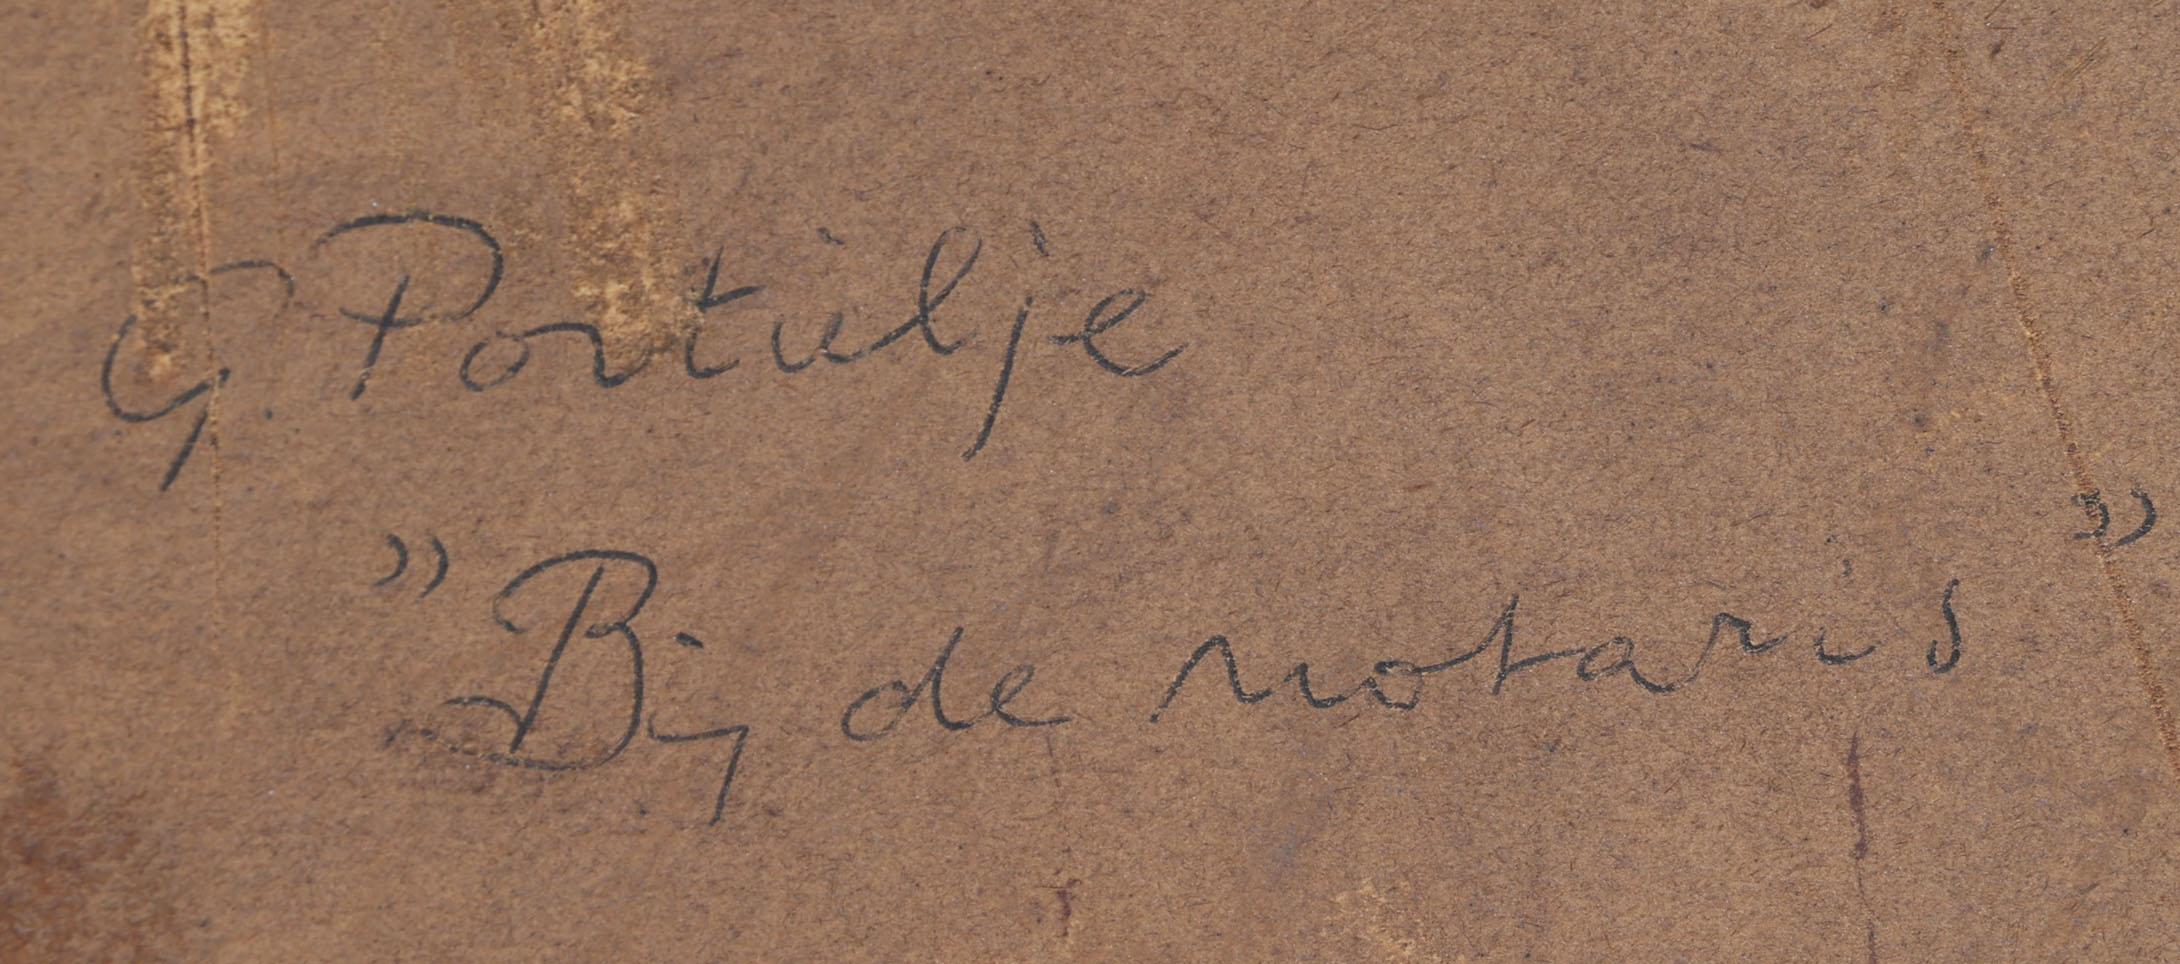 G. Portielje
"Bij de notaris"